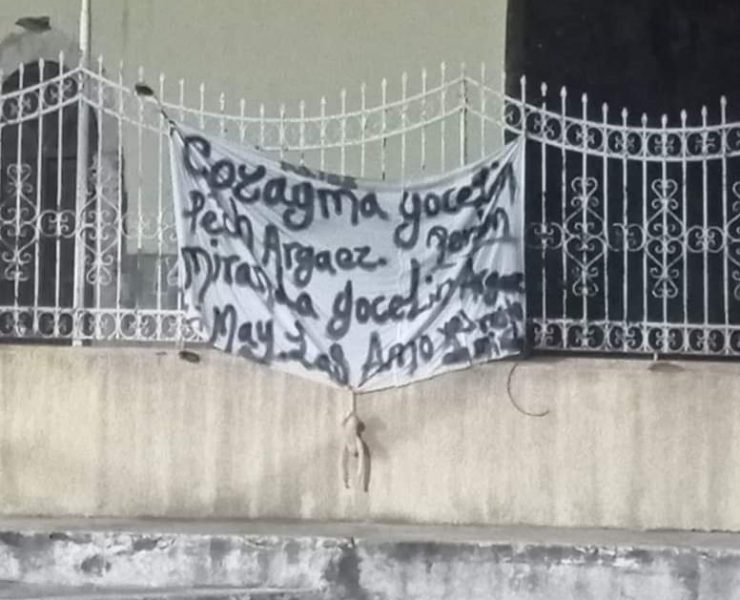 Coragma yocelin
Pech Argaez. Perón
Miranda yocelin Argae
May Las Amo